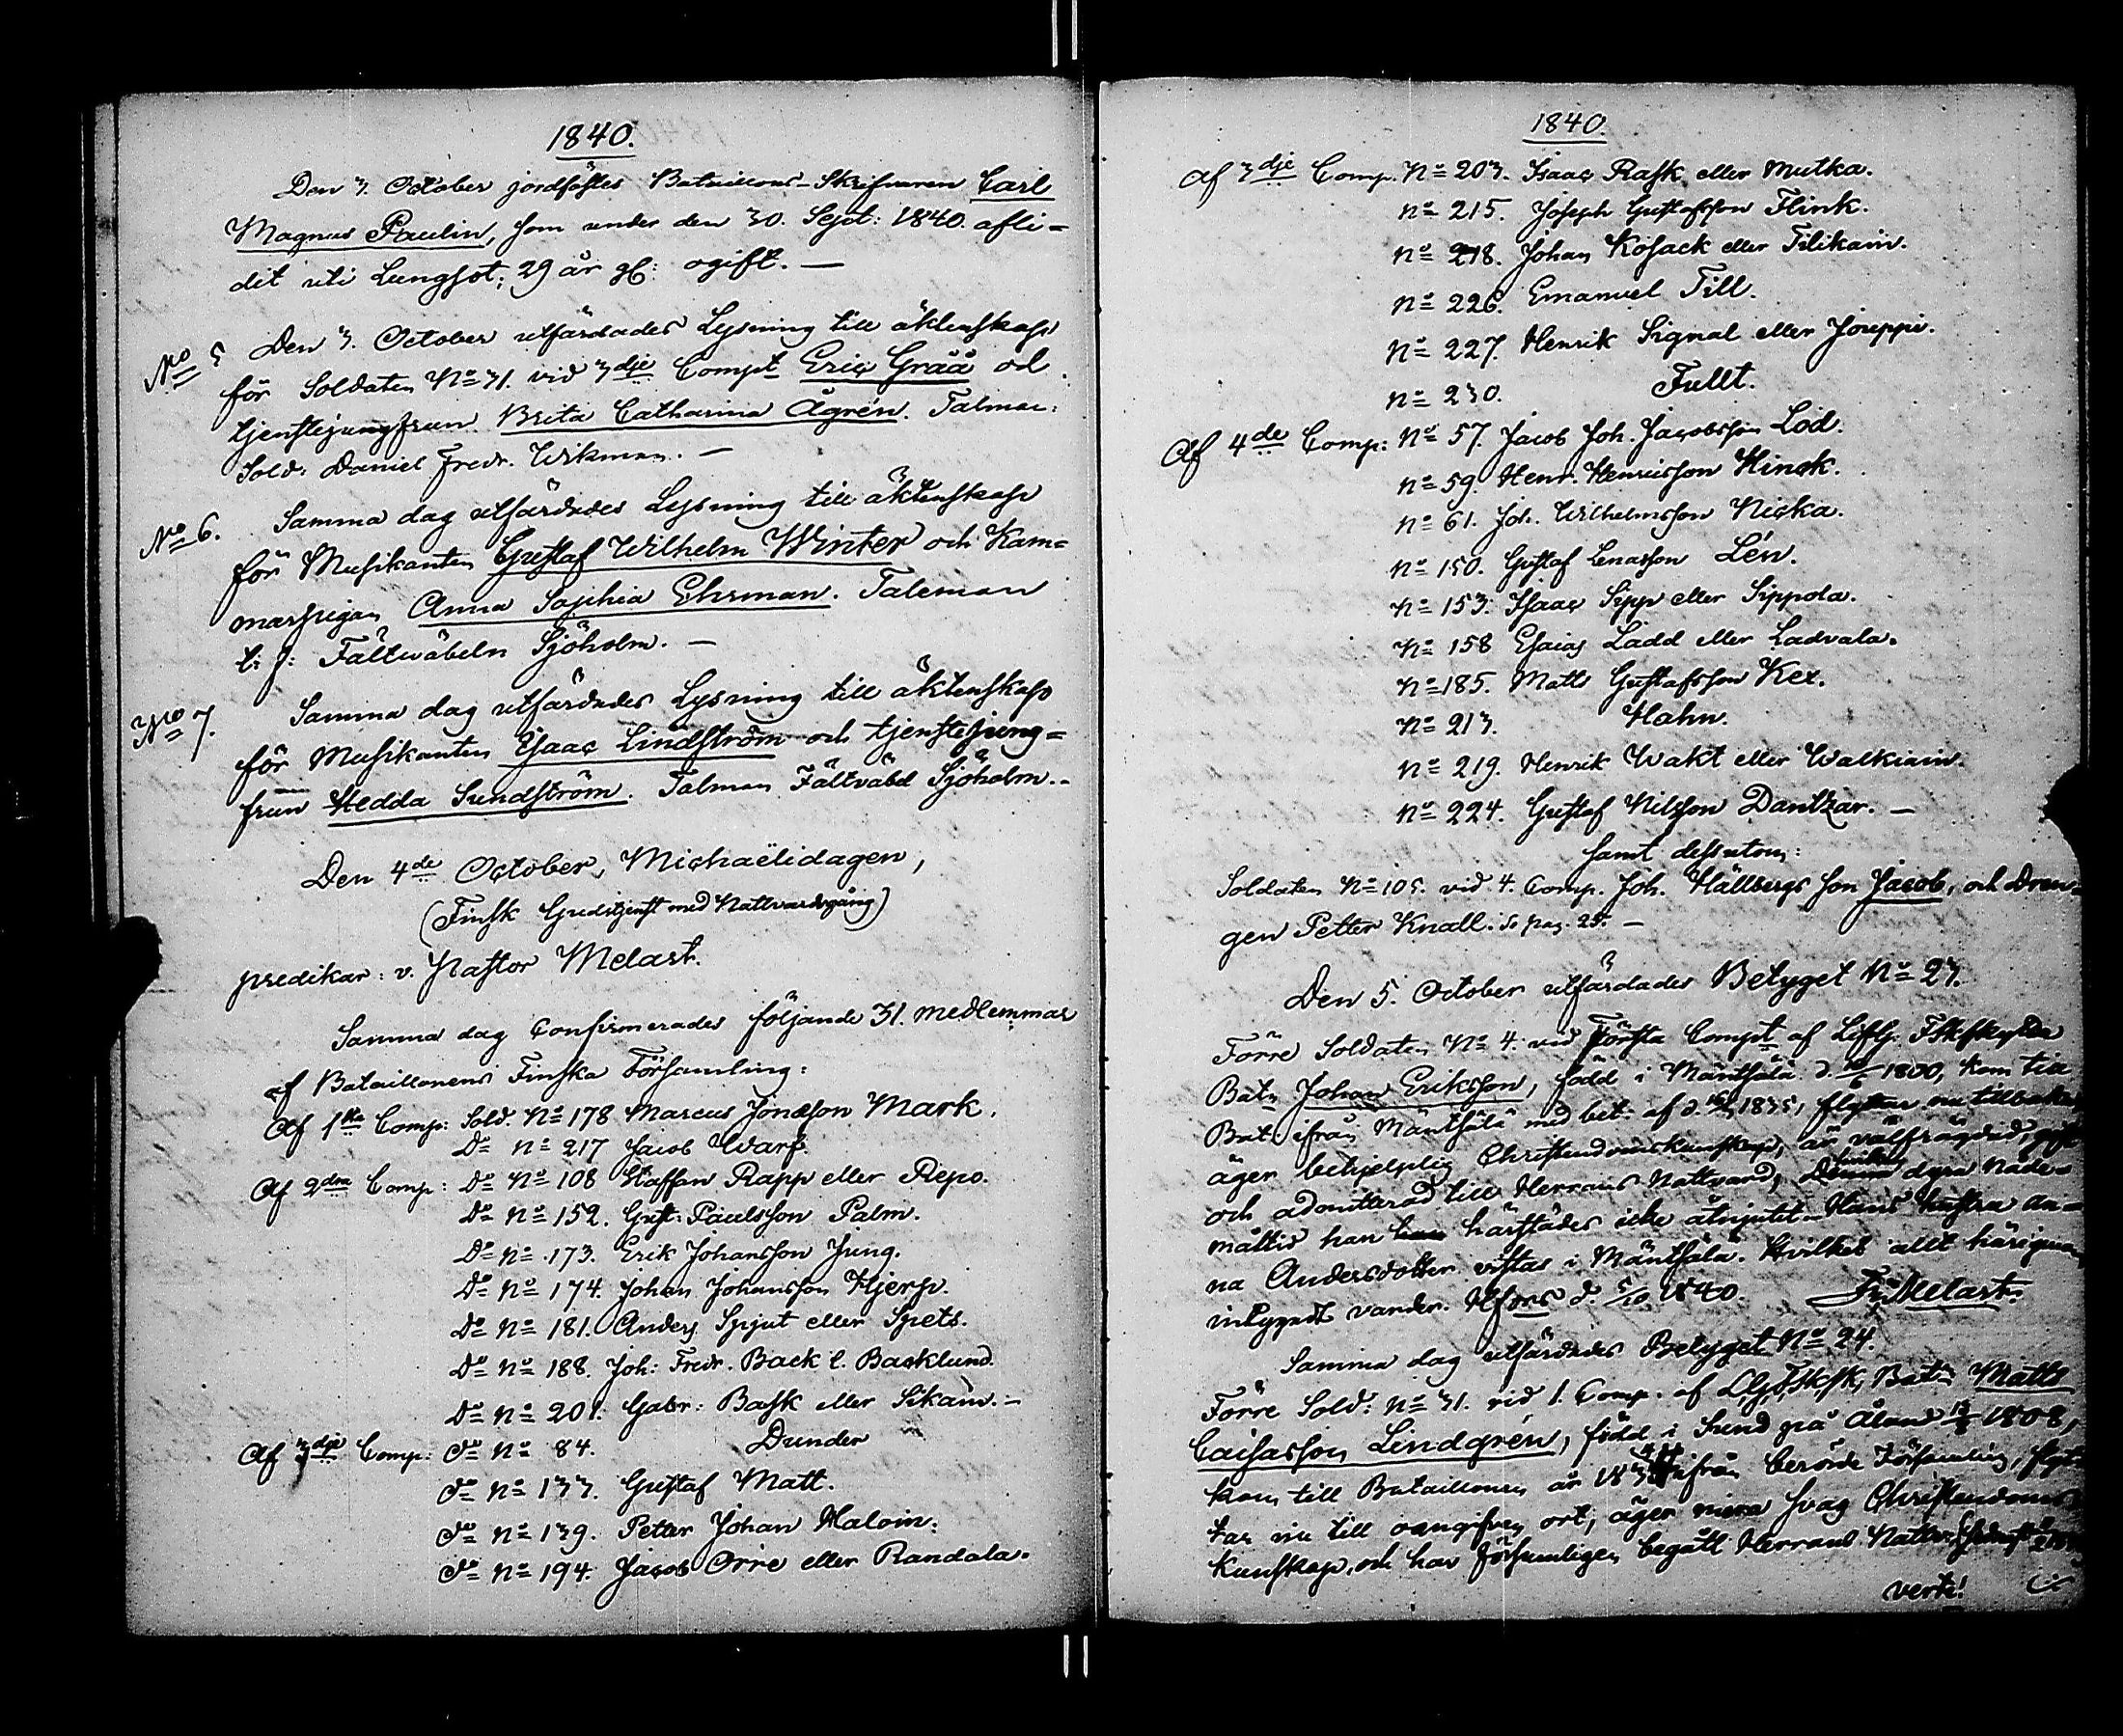 1840.
Den 3. October jordfästes Bataillons-Skrifvaren Carl
Magnus Paulin, som under den 30. Sept: 1840. afli-
dit uti Lungsot; 29 år gl: ogift. —
No 5 Den 3. October utfärdades Lysning till äktenskap
för Soldaten No 31. vid 3dje Compt Eric Gråå och
tjenstejungfrun Brita Catharina Ågrén. Talman:
Sold: Daniel Fredr. Wikman. —
No 6. Samma dag utfärdades Lysning till äktenskap
för Musikanten Gustaf Wilhelm Winter och Kam-
marpigan Anna Sophia Ehrman. Taleman
t. f: Fältwäbeln Sjöholm. —
No 7. Samma dag utfärdades Lysning till äktenskap
för Musikanten Esaac Lindström och tjenstejung-
frun Hedda Sundström. Talman Fältväbel Sjöholm. -
Den 4de October, Michaëlidagen,
(Finsk Gudstjenst med Nattvardsgång)
predikar: v. Pastor Melart.
Samma dag Confirmerades följande 31. medlemmar
af Bataillonens Finska Församling:
Af 1sta Comp: Sold. No 178 Marcus Jonasson Mark.
Do No 217 Jacob Warp.
Af 2dra Comp: Do No 108 Staffan Rapp eller Repo.
Do No 152. Gust: Paulsson Palm.
Do No 173. Erik Johansson Jung.
Do No 174. Johan Johansson Hjerp.
Do No 181. Anders Spjut eller Spets.
Do No 188. Joh: Fredr. Back l. Backlund.
Do No 201. Gabr: Bask eller Sikain. -
Af 3dje Comp: Do No 84. Dunder
Do No 133. Gustaf Matt.
Do No 139. Petter Johan Maloin.
Do No 194. Jacob Orre eller Randala.
1840.
Af 3dje Comp. No 203. Isaac Rask eller Mutka.
No 215. Joseph Gustafsson Flink.
No 218. Johan Kosack eller Filikain.
No 226. Emanuel Till.
No 227. Henrik Signal eller Joreppi.
No 230. Fullt.
Af 4de Comp: No 57. Jacob Joh. Jacobsson Lod.
No 59. Henr. Henricsson Hinck.
No 61. Joh. Wilhelmsson Nicka.
No 150. Gustaf Lenasson Lén.
No 153. Isaac Sipp eller Sippola.
No 158 Esaias Ladd eller Ladvala.
No 185. Matts Gustafsson Kex.
No 213. Hahn.
No 219. Henrik Wakt eller Walkiain.
No 224. Gustaf Nilsson Dantzar. —
samt dessutom:
Soldaten No 105. vid 4. Comp. Joh. Hällbergs son Jacob, och Drän-
gen Petter Knall. se pag. 25. —
Den 5. October utfärdades Betyget No 23.
Förre Soldaten No 4. vid Första Compt af Lifg. Fskskytte
Batn Johan Eriksson, född i Mäntsälä d. 1800, kom till
Bat: ifrån Mäntsälä med bet: af d. 1835, flyttar nu tillbaka,
äger behjelplig Christendomskunskap, är välfrägdad, gift
och admitterad till Herrans Nattvard, hvilken dyra nåde-
måltid han härstädes icke åtnjutit. Hans Hustru An-
na Andersdotter vistas i Mäntsälä. Hvilket allt härigenom
intygadt varder. Hfors d. 5/10 1840. Fr. Melart.
Samma dag utfärdades Betyget No 24.
Förre Sold: No 31. vid 1. Comp. af Batn Matts
Caisasson Lindgrén, född i Sund på Åland 1808,
kom till Bataillonen år 1834 ifrån berörde Församling, flyt-
tar nu till oangifven ort, äger svag Christendoms
Kunskap, och har försumligen begått Herrans Nattv.
verte!